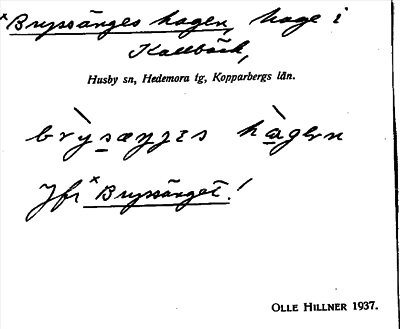 ×Brysänges hagen, hage i
Kallbäck,
Husby sn, Hedemora tg, Kopparbergs län.
Jfr ×Brysänget!
OLLE HILLNER 1937.